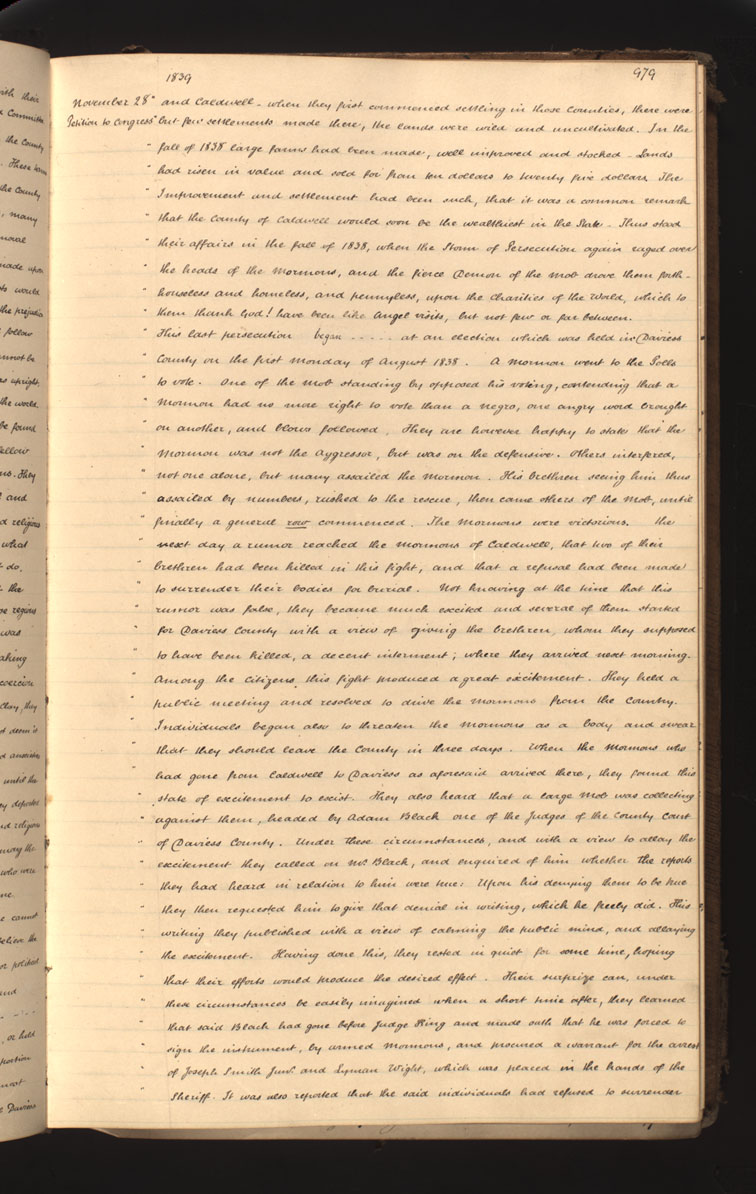 1839
979
November 28" and Caldwell - when they first commenced settling in those Counties, there were
Petition to Congress " but few settlements made there, the lands were wild and uncultivated. In the
" fall of 1838 large farms had been made, well improved and stocked - Lands
" had risen in value and sold for from ten dollars to twenty five dollars. The
" Improvement and settlement had been such, that it was a common remark
" that the County of Caldwell would soon be the wealthiest in the State - Thus stood
" their affairs in the fall of 1838, when the Storm of Persecution again raged over
" the heads of the Mormons, and the fierce Demon of the Mob drove them forth -
" houseless and homeless, and pennyless, upon the charities of the World, which to
" them thank God! have been like Angel visits, but not few or far between.
" This last persecution began - - - - - at an election which was held in Daviess
" County on the first Monday of August 1838. A Mormon went to the Polls
" to vote. One of the mob standing by opposed his voting, contending that a
" Mormon had no more right to vote than a negro, one angry word brought
" on another, and blows followed. They are however happy to state that the
" Mormon was not the aggressor, but was on the defensive. Others interfered,
" not one alone, but many assailed the Mormon. His brethren seeing him thus
" assailed by numbers, rushed to the rescue, then came others of the Mob, until
" finally a general row commenced. The Mormons were victorious. The
" next day a rumor reached the Mormons of Caldwell, that two of their
" brethren had been killed in this fight, and that a refusal had been made
" to surrender their bodies for burial. Not knowing at the time that this
" rumor was false, they became much excited and several of them started
" for Daviess County with a view of giving the brethren, whom they supposed
" to have been killed, a decent interment; where they arrived next morning.
" Among the citizens this fight produced a great excitement. They held a
" public meeting and resolved to drive the Mormons from the Country.
" Individuals began also to threaten the Mormons as a body and swear
" that they should leave the County in three days. When the Mormons who
" had gone from Caldwell to Daviess as aforesaid arrived there, they found this
" state of excitement to exist. They also heard that a large mob was collecting
" against them, headed by Adam Black one of the Judges of the County Court
" of Daviess County. Under these circumstances, and with a view to allay the
" excitement they called on Mr Black, and enquired of him whether the reports
" they had heard in relation to him were true: Upon his denying them to be true
" they then requested him to give that denial in writing, which he freely did. This
" writing they published with a view of calming the public mind, and allaying
" the excitement. Having done this, they rested in quiet for some time, hoping
" that their efforts would produce the desired effect. Their surprize can, under
" these circumstances be easily imagined when a short time after, they learned
" that said Black had gone before Judge King and made oath that he was forced to
" sign the instrument, by armed Mormons, and procured a warrant for the arrest
" of Joseph Smith Junr and Lyman Wight, which was placed in the hands of the
" Sheriff. It was also reported that the said individuals had refused to surrender